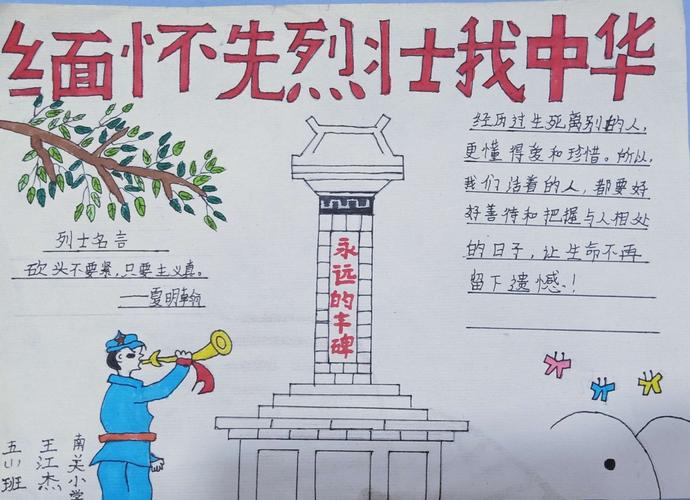 缅怀先烈壮我中华
烈士名言
砍头不要紧,只要主义真。
——夏明翰
永远的丰碑
经历过生死离别的人,
更懂得爱和珍惜。所以,
我们活着的人,都要好
好善待和把握与人相处
的日子,让生命不再
留下遗憾!
南关小学
王江杰
五(1)班